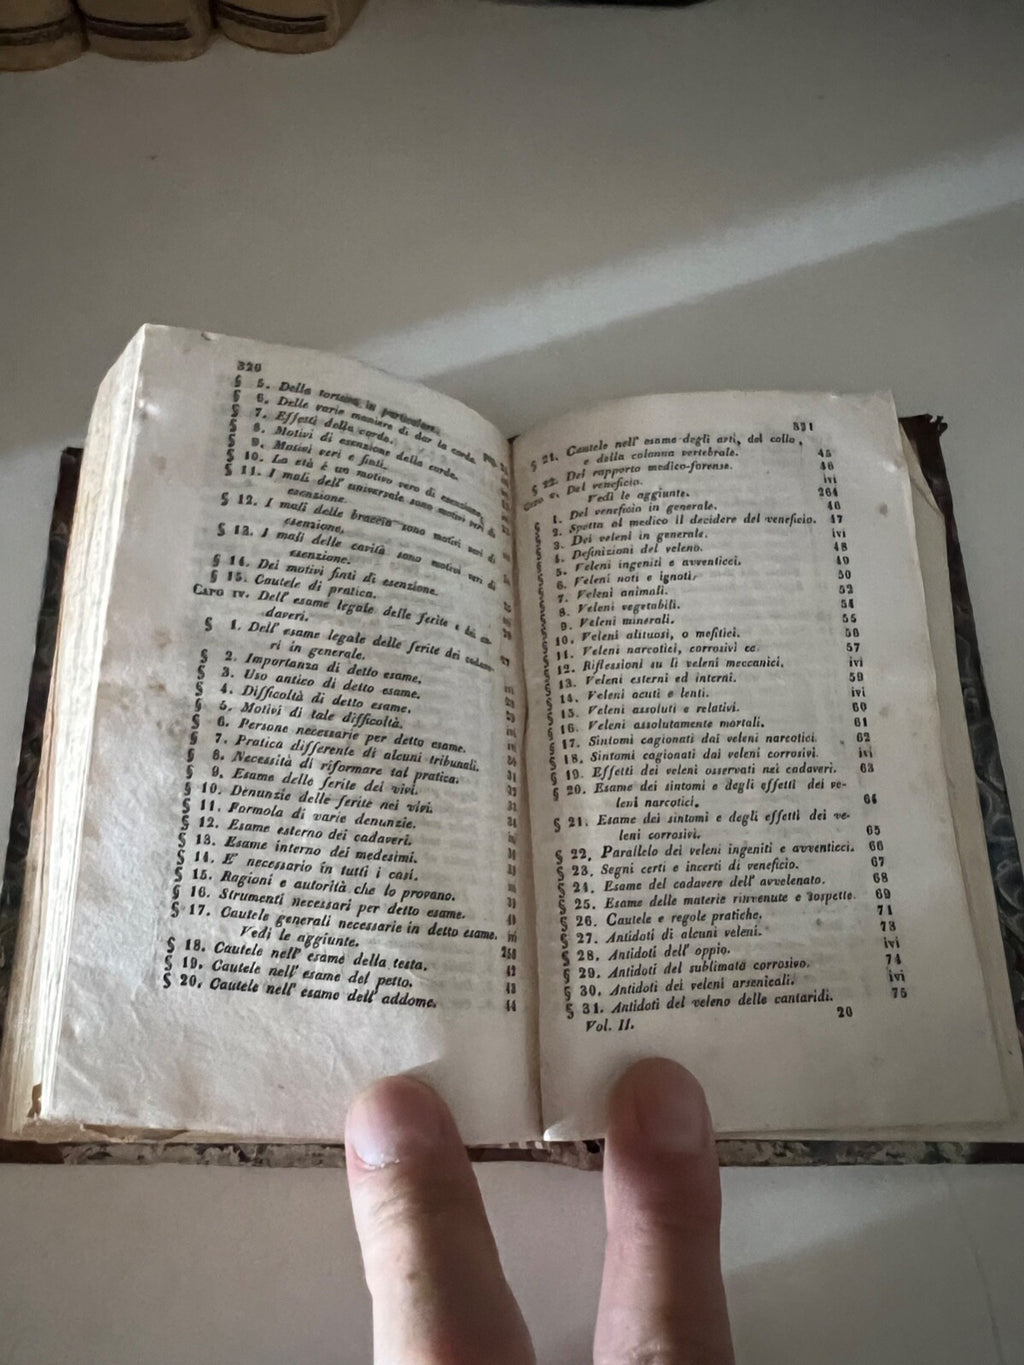 320
§ 5. Della tortura in particolare.
§ 6. Delle varie maniere di dar la corda. pag.
§ 7. Effetti della corda.
§ 8. Motivi di esenzione della corda.
§ 9. Motivi veri e finti.
§ 10. La età è un motivo vero di esenzione.
§ 11. I mali dell' universale sono motivi veri di
esenzione.
§ 12. I mali delle braccia sono motivi veri di
esenzione.
§ 13. I mali delle cavità sono motivi veri di
esenzione.
§ 14. Dei motivi finti di esenzione.
§ 15. Cautele di pratica.
CAPO IV. Dell' esame legale delle ferite e dei ca-
daveri.
§ 1. Dell' esame legale delle ferite dei cadave-
ri in generale.
§ 2. Importanza di detto esame.
§ 3. Uso antico di detto esame.
§ 4. Difficoltà di detto esame.
§ 5. Motivi di tale difficoltà.
§ 6. Persone necessarie per detto esame.
§ 7. Pratica differente di alcuni tribunali.
§ 8. Necessità di riformare tal pratica.
§ 9. Esame delle ferite dei vivi.
§ 10. Denunzie delle ferite nei vivi.
§ 11. Formola di varie denunzie.
§ 12. Esame esterno dei cadaveri.
§ 13. Esame interno dei medesimi.
§ 14. E' necessario in tutti i casi.
§ 15. Ragioni e autorità che lo provano.
§ 16. Strumenti necessari per detto esame.
§ 17. Cautele generali necessarie in detto esame. ivi
Vedi le aggiunte.
§ 18. Cautele nell' esame della testa. 42
§ 19. Cautele nell' esame del petto. 43
§ 20. Cautele nell' esame dell' addome. 44
321
§ 21. Cautele nell' esame degli arti, del collo,
e della colonna vertebrale. 45
§ 22. Del rapporto medico-forense. 46
CAPO V. Del veneficio. ivi
Vedi le aggiunte. 264
§ 1. Del veneficio in generale. 46
§ 2. Spetta al medico il decidere del veneficio. 47
§ 3. Dei veleni in generale. ivi
§ 4. Definizioni del veleno. 48
§ 5. Veleni ingeniti e avventicci. 49
§ 6. Veleni noti e ignoti. 50
§ 7. Veleni animali. 52
§ 8. Veleni vegetabili. 54
§ 9. Veleni minerali. 55
§ 10. Veleni alituosi, o mefitici. 56
§ 11. Veleni narcotici, corrosivi ec. 57
§ 12. Riflessioni su li veleni meccanici. ivi
§ 13. Veleni esterni ed interni. 59
§ 14. Veleni acuti e lenti. ivi
§ 15. Veleni assoluti e relativi. 60
§ 16. Veleni assolutamente mortali. 61
§ 17. Sintomi cagionati dai veleni narcotici. 62
§ 18. Sintomi cagionati dai veleni corrosivi. ivi
§ 19. Effetti dei veleni osservati nei cadaveri. 63
§ 20. Esame dei sintomi e degli effetti dei ve-
leni narcotici. 64
§ 21. Esame dei sintomi e degli effetti dei ve-
leni corrosivi. 65
§ 22. Parallelo dei veleni ingeniti e avventicci. 66
§ 23. Segni certi e incerti di veneficio. 67
§ 24. Esame del cadavere dell' avvelenato. 68
§ 25. Esame delle materie rinvenute e sospette. 69
§ 26. Cautele e regole pratiche. 71
§ 27. Antidoti di alcuni veleni. 73
§ 28. Antidoti dell' oppio. ivi
§ 29. Antidoti del sublimato corrosivo. 74
§ 30. Antidoti dei veleni arsenicali. ivi
§ 31. Antidoti del veleno delle cantaridi. 75
Vol. II. 20